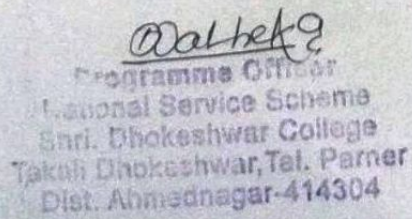 Programme Officer
National Service Scheme
Shri. Dhokeshwar College
Takali Dhokeshwar, Tal. Parner
Dist. Ahmednagar-414304